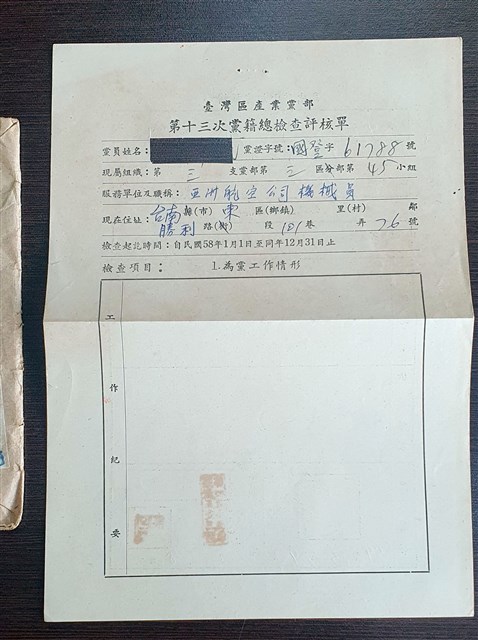 臺灣區產業黨部
第十三次黨籍總檢查評核單
黨員姓名： 黨證字號：國登字 61788 號
現屬組織：第 三 支黨部第 三 區分部第 45 小組
服務單位及職稱：亞洲航空公司機械員
現在住址：台南縣(市) 東 區(鄉鎮) 里(村) 鄰
勝利路(街) 段 121 巷 弄 76 號
檢查起訖時間：自民國58年1月1日至同年12月31日止
檢查項目： 1.為黨工作情形
工作紀要